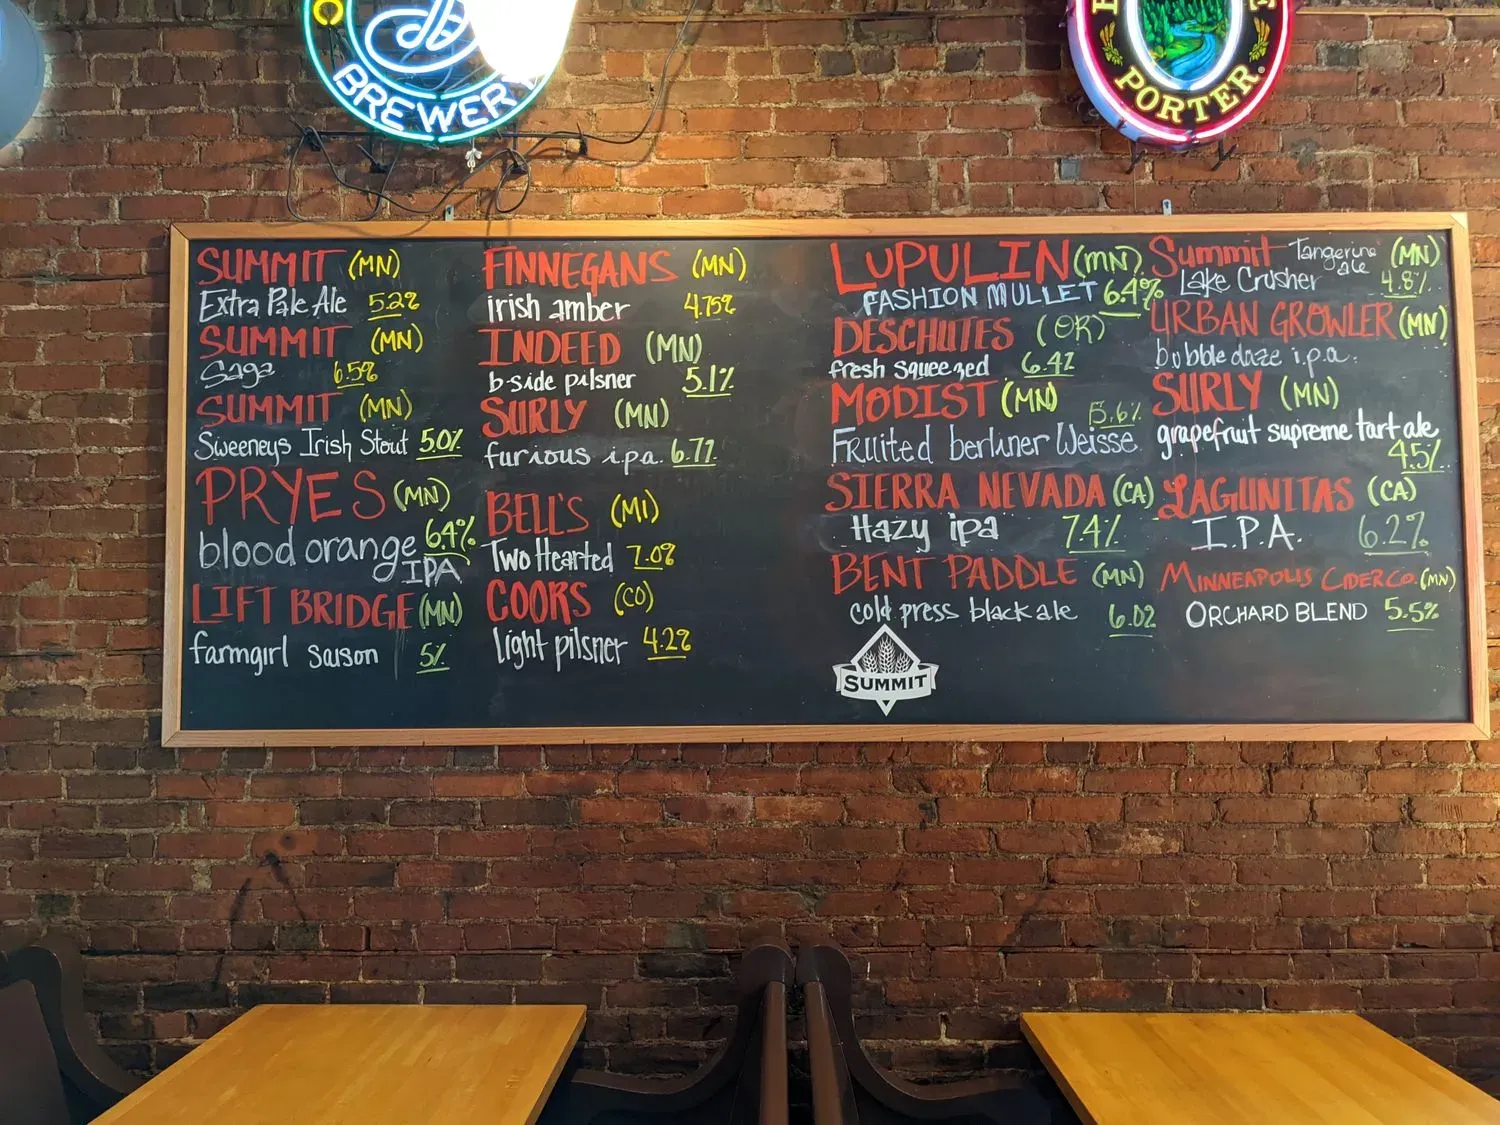 C
BREWER
PORTER
SUMMIT (MN)
Extra Pale Ale 5.2%
SUMMIT (MN)
Saga 6.5%
SUMMIT (MN)
Sweeneys Irish Stout 5.0%
PRYES (MN)
blood orange 6.4%
IPA
LIFT BRIDGE (MN)
farmgirl saison 5%
FINNEGANS (MN)
irish amber 4.75%
INDEED (MN)
b-side pilsner 5.1%
SURLY (MN)
furious i.p.a. 6.7%
BELL'S (MI)
Two Hearted 7.0%
COORS (CO)
light pilsner 4.2%
LUPULIN (MN)
FASHION MULLET 6.4%
DESCHUTES (OR)
fresh squeezed 6.4%
MODIST (MN) 5.6%
Fruited berliner Weisse
SIERRA NEVADA (CA)
Hazy ipa 7.4%
BENT PADDLE (MN)
cold press black ale 6.0%
SUMMIT
Summit Tangerine (MN)
ale
Lake Crusher 4.8%
URBAN GROWLER (MN)
bubble daze i.p.a.
SURLY (MN)
grapefruit supreme tart ale
4.5%
LAGUNITAS (CA)
I.P.A. 6.2%
MINNEAPOLIS CIDER CO. (MN)
ORCHARD BLEND 5.5%